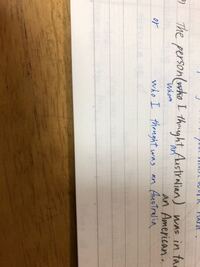 The person (who I thought Australian) was in fa
whom
an American.
or who I thought was an Australia